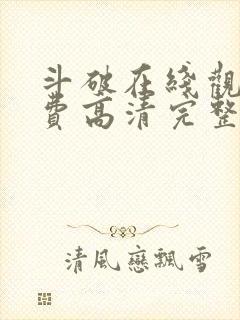 斗破在綫觀
費高清完整
清風戀飄雪